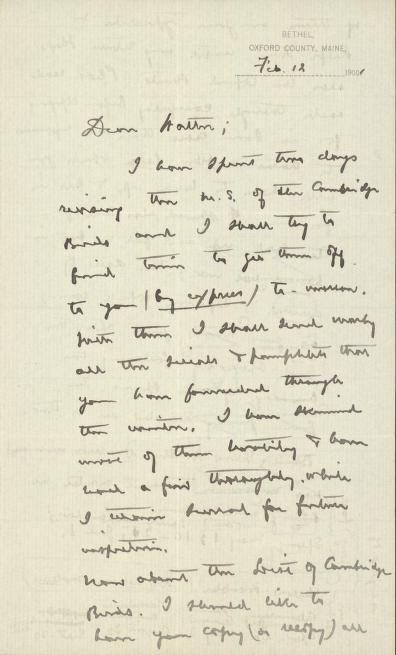 BETHEL,
OXFORD COUNTY, MAINE,
Feb. 12 1906
Dear Walter;
I have spent two days
revising the M.S. of the Cambridge
Birds and I shall try to
find time to get them off
to you (by express) to-morrow.
With them I shall send nearly
all the serials & pamphlets that
you have forwarded through
the winter. I have skimmed
most of them hastily & have
read a few thoroughly, while
I retain several for further
inspection.
Now about the List of Cambridge
Birds. I should like to
have your copy (or recopy) all